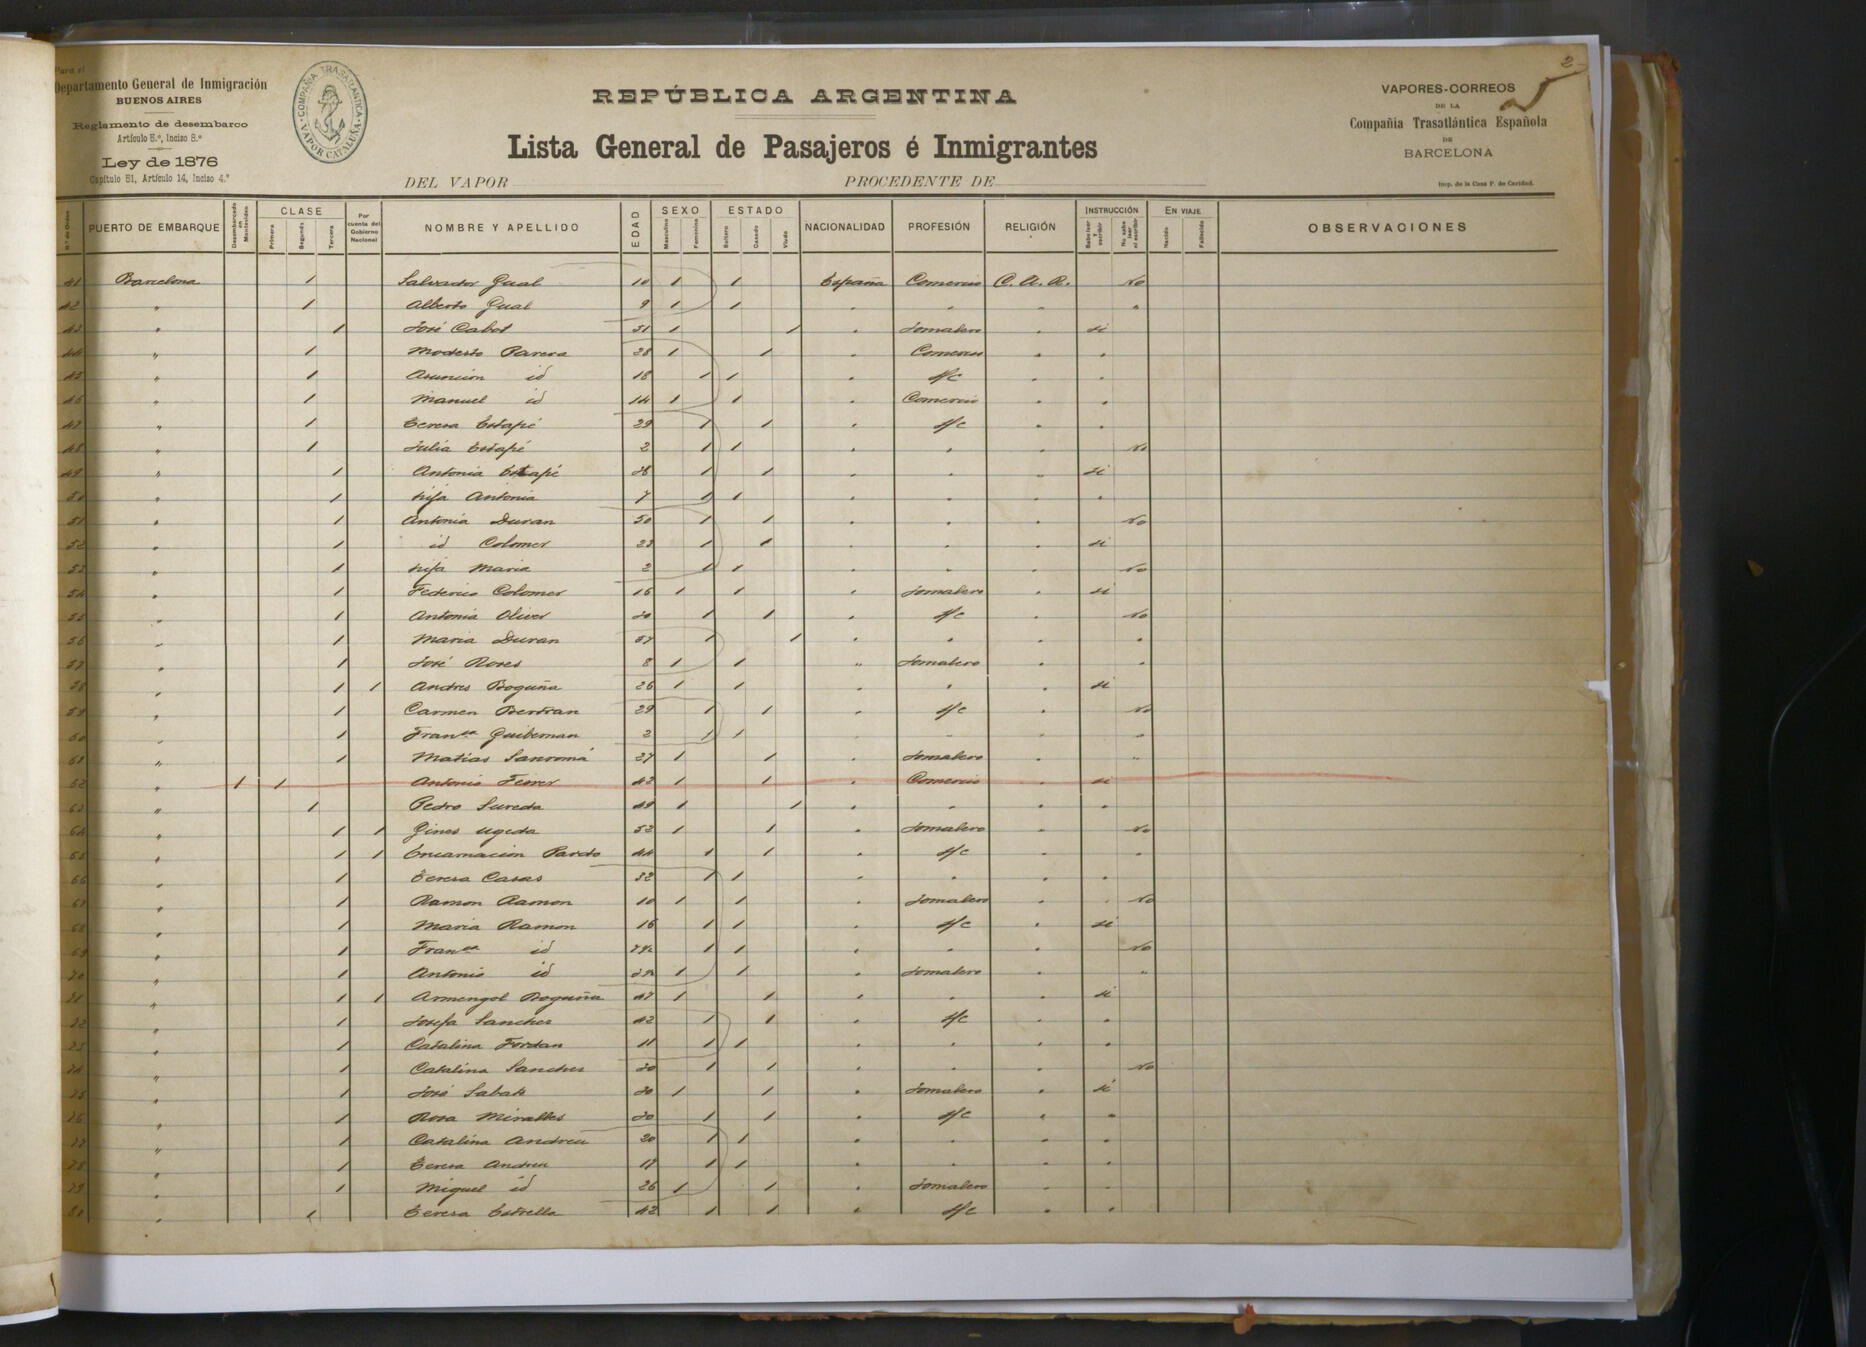 2
Para el
Departamento General de Inmigración
BUENOS AIRES
Reglamento de desembarco
Artículo 5.º, Inciso 8.º
Ley de 1876
Capítulo 51, Artículo 14, Inciso 4.º
COMPAÑIA TRASATLÁNTICA
VAPOR CATALUÑA
REPÚBLICA ARGENTINA
Lista General de Pasajeros é Inmigrantes
DEL VAPOR PROCEDENTE DE
VAPORES-CORREOS
DE LA
Compañia Trasatlántica Española
DE
BARCELONA
Imp. de la Casa P. de Caridad.
N.º de Orden PUERTO DE EMBARQUE Desembarcado en Montevideo CLASE Primera Segunda Tercera Por cuenta del Gobierno Nacional NOMBRE Y APELLIDO EDAD SEXO Masculino Femenino ESTADO Soltero Casado Viudo NACIONALIDAD PROFESIÓN RELIGIÓN INSTRUCCIÓN Sabe leer y escribir No sabe leer ni escribir EN VIAJE Nacido Fallecido OBSERVACIONES
41 Barcelona / Salvador Gual 10 / / España Comercio C. A. R. No
42 " / Alberto Gual 9 / / " " " "
43 " / José Cabot 51 / / " Jornalero " si
44 " / Modesto Parera 38 / / " Comercio " "
45 " / Asuncion id 18 / / " s/c " "
46 " / Manuel id 14 / / " Comercio " "
47 " / Teresa Estapé 29 / / " s/c " "
48 " / Julia Estapé 2 / / " " " No
49 " / Antonia Estapé 28 / / " " " si
50 " / hija Antonia 7 / / " " " "
51 " / Antonia Duran 50 / / " " " No
52 " / id Colomer 23 / / " " " si
53 " / hija Maria 2 / / " " " No
54 " / Federico Colomer 16 / / " Jornalero " si
55 " / Antonia Oliver 30 / / " s/c " No
56 " / Maria Duran 57 / / " " " "
57 " / José Roses 8 / / " Jornalero " "
58 " / / Andres Boguña 26 / / " " " si
59 " / Carmen Bertran 29 / / " s/c " No
60 " / Franca Guibernau 2 / / " " " "
61 " / Matias Sanromá 27 / / " Jornalero " "
62 " / / Antonio Ferrer 43 / / " Comercio " si
63 " / Pedro Sureda 49 / / " " " "
64 " / / Gines Ugeda 52 / / " Jornalero " No
65 " / / Encarnacion Pardo 44 / / " s/c " "
66 " / Teresa Casas 32 / / " " " "
67 " / Ramon Ramon 10 / / " Jornalero " No
68 " / Maria Ramon 16 / / " s/c " si
69 " / Franca id / / " " " No
70 " / Antonio id / / " Jornalero " "
71 " / / Armengol Boguña 47 / / " " " si
72 " / Josefa Sanchez 42 / / " s/c " "
73 " / Catalina Jordan 11 / / " " " "
74 " / Catalina Sanchez 30 / / " " " No
75 " / José Sabate 30 / / " Jornalero " si
76 " / Rosa Miralles 30 / / " s/c " "
77 " / Catalina Andreu 20 / / " " " "
78 " / Teresa Andreu 17 / / " " " "
79 " / Miguel id 26 / / " Jornalero " "
80 " / Teresa Estrella 42 / / " s/c " "